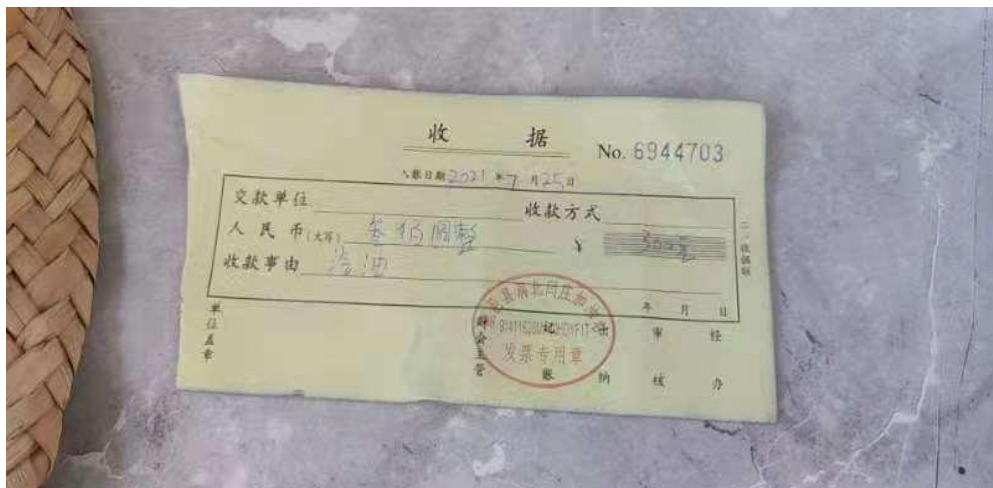 收 据
No. 6944703
入账日期2021年7月25日
交款单位 收款方式
人民币(大写) 叁佰圆整 ¥ 300元
收款事由 汽油
年 月 日
二、收据联
单位盖章
财会主管 记账 出纳 审核 经办
发票专用章